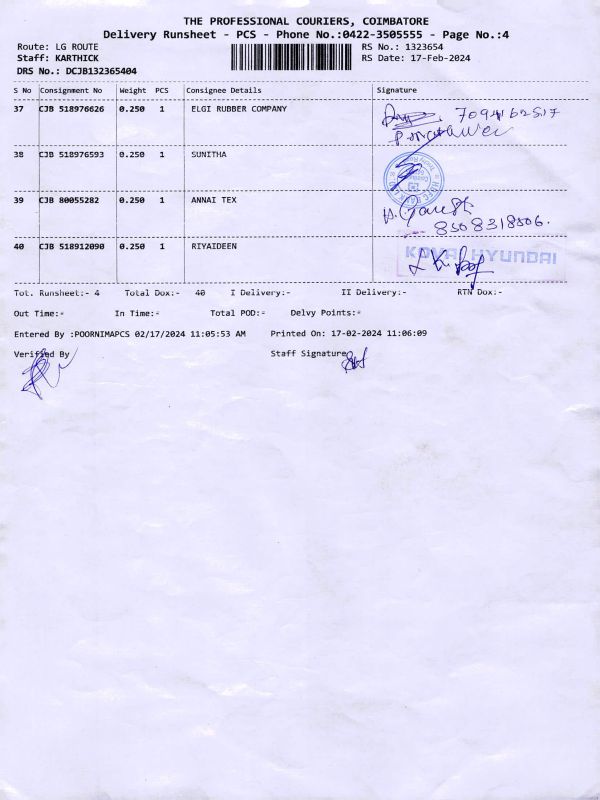 THE PROFESSIONAL COURIERS, COIMBATORE
Delivery Runsheet - PCS - Phone No.:0422-3505555 - Page No.:4
Route: LG ROUTE RS No.: 1323654
Staff: KARTHICK RS Date: 17-Feb-2024
DRS No.: DCJB132365404
S No Consignment No Weight PCS Consignee Details Signature
37 CJB 518976626 0.250 1 ELGI RUBBER COMPANY
38 CJB 518976593 0.250 1 SUNITHA
39 CJB 80055282 0.250 1 ANNAI TEX
8508318506.
40 CJB 518912090 0.250 1 RIYAIDEEN KOVAI HYUNDAI
Tot. Runsheet:- 4 Total Dox:- 40 I Delivery:- II Delivery:- RTN Dox:-
Out Time:- In Time:- Total POD:- Delvy Points:-
Entered By :POORNIMAPCS 02/17/2024 11:05:53 AM Printed On: 17-02-2024 11:06:09
Verified By Staff Signature